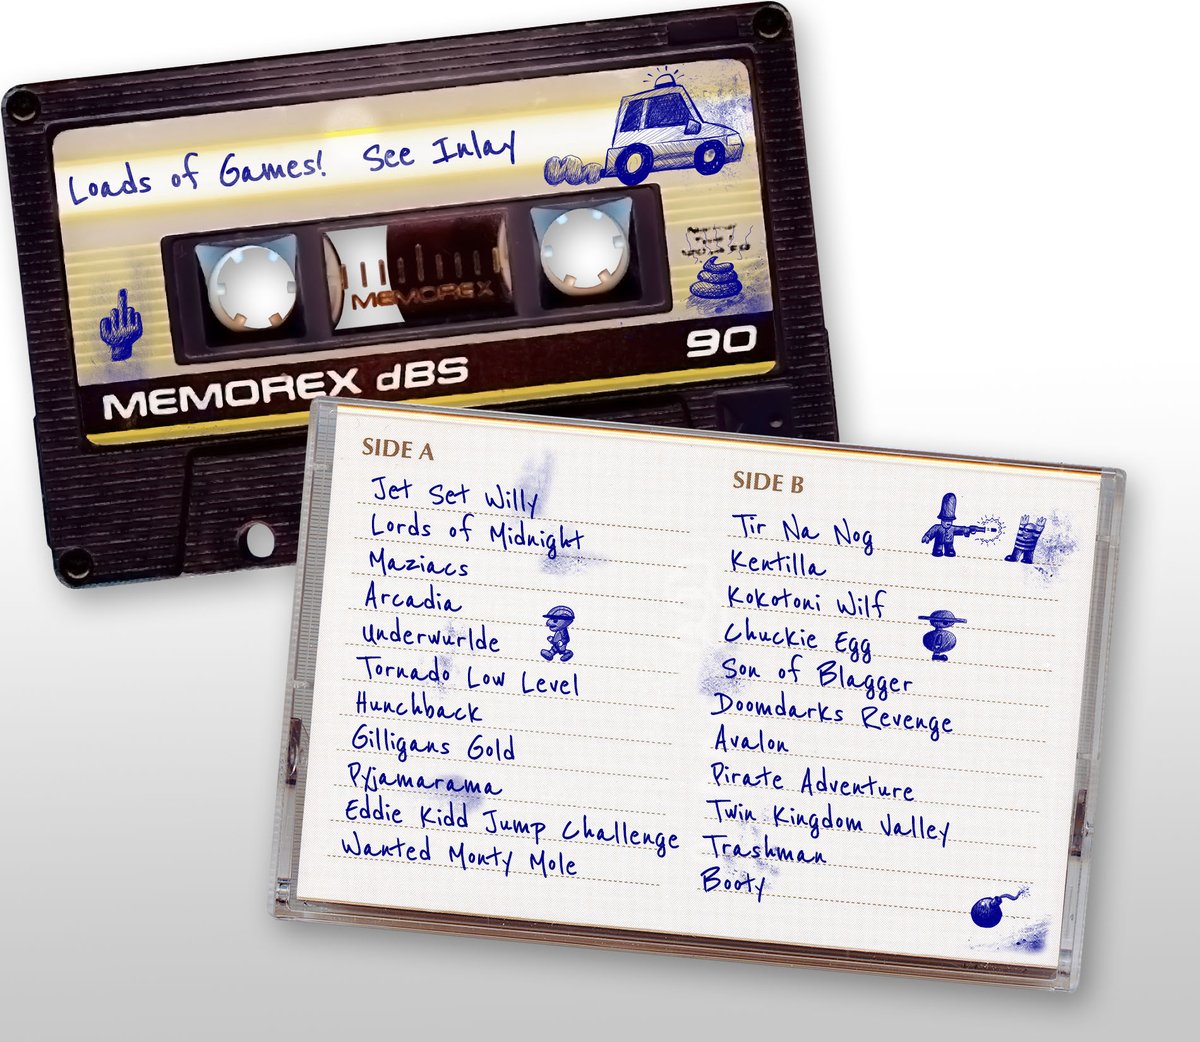 Loads of Games! See Inlay
MEMOREX
90
MEMOREX dBS
SIDE A
Jet Set Willy
Lords of Midnight
Maziacs
Arcadia
Underwurlde
Tornado Low Level
Hunchback
Gilligans Gold
Pyjamarama
Eddie Kidd Jump Challenge
Wanted Monty Mole
SIDE B
Tir Na Nog
Kentilla
Kokotoni Wilf
Chuckie Egg
Son of Blagger
Doomdarks Revenge
Avalon
Pirate Adventure
Twin Kingdom Valley
Trashman
Booty